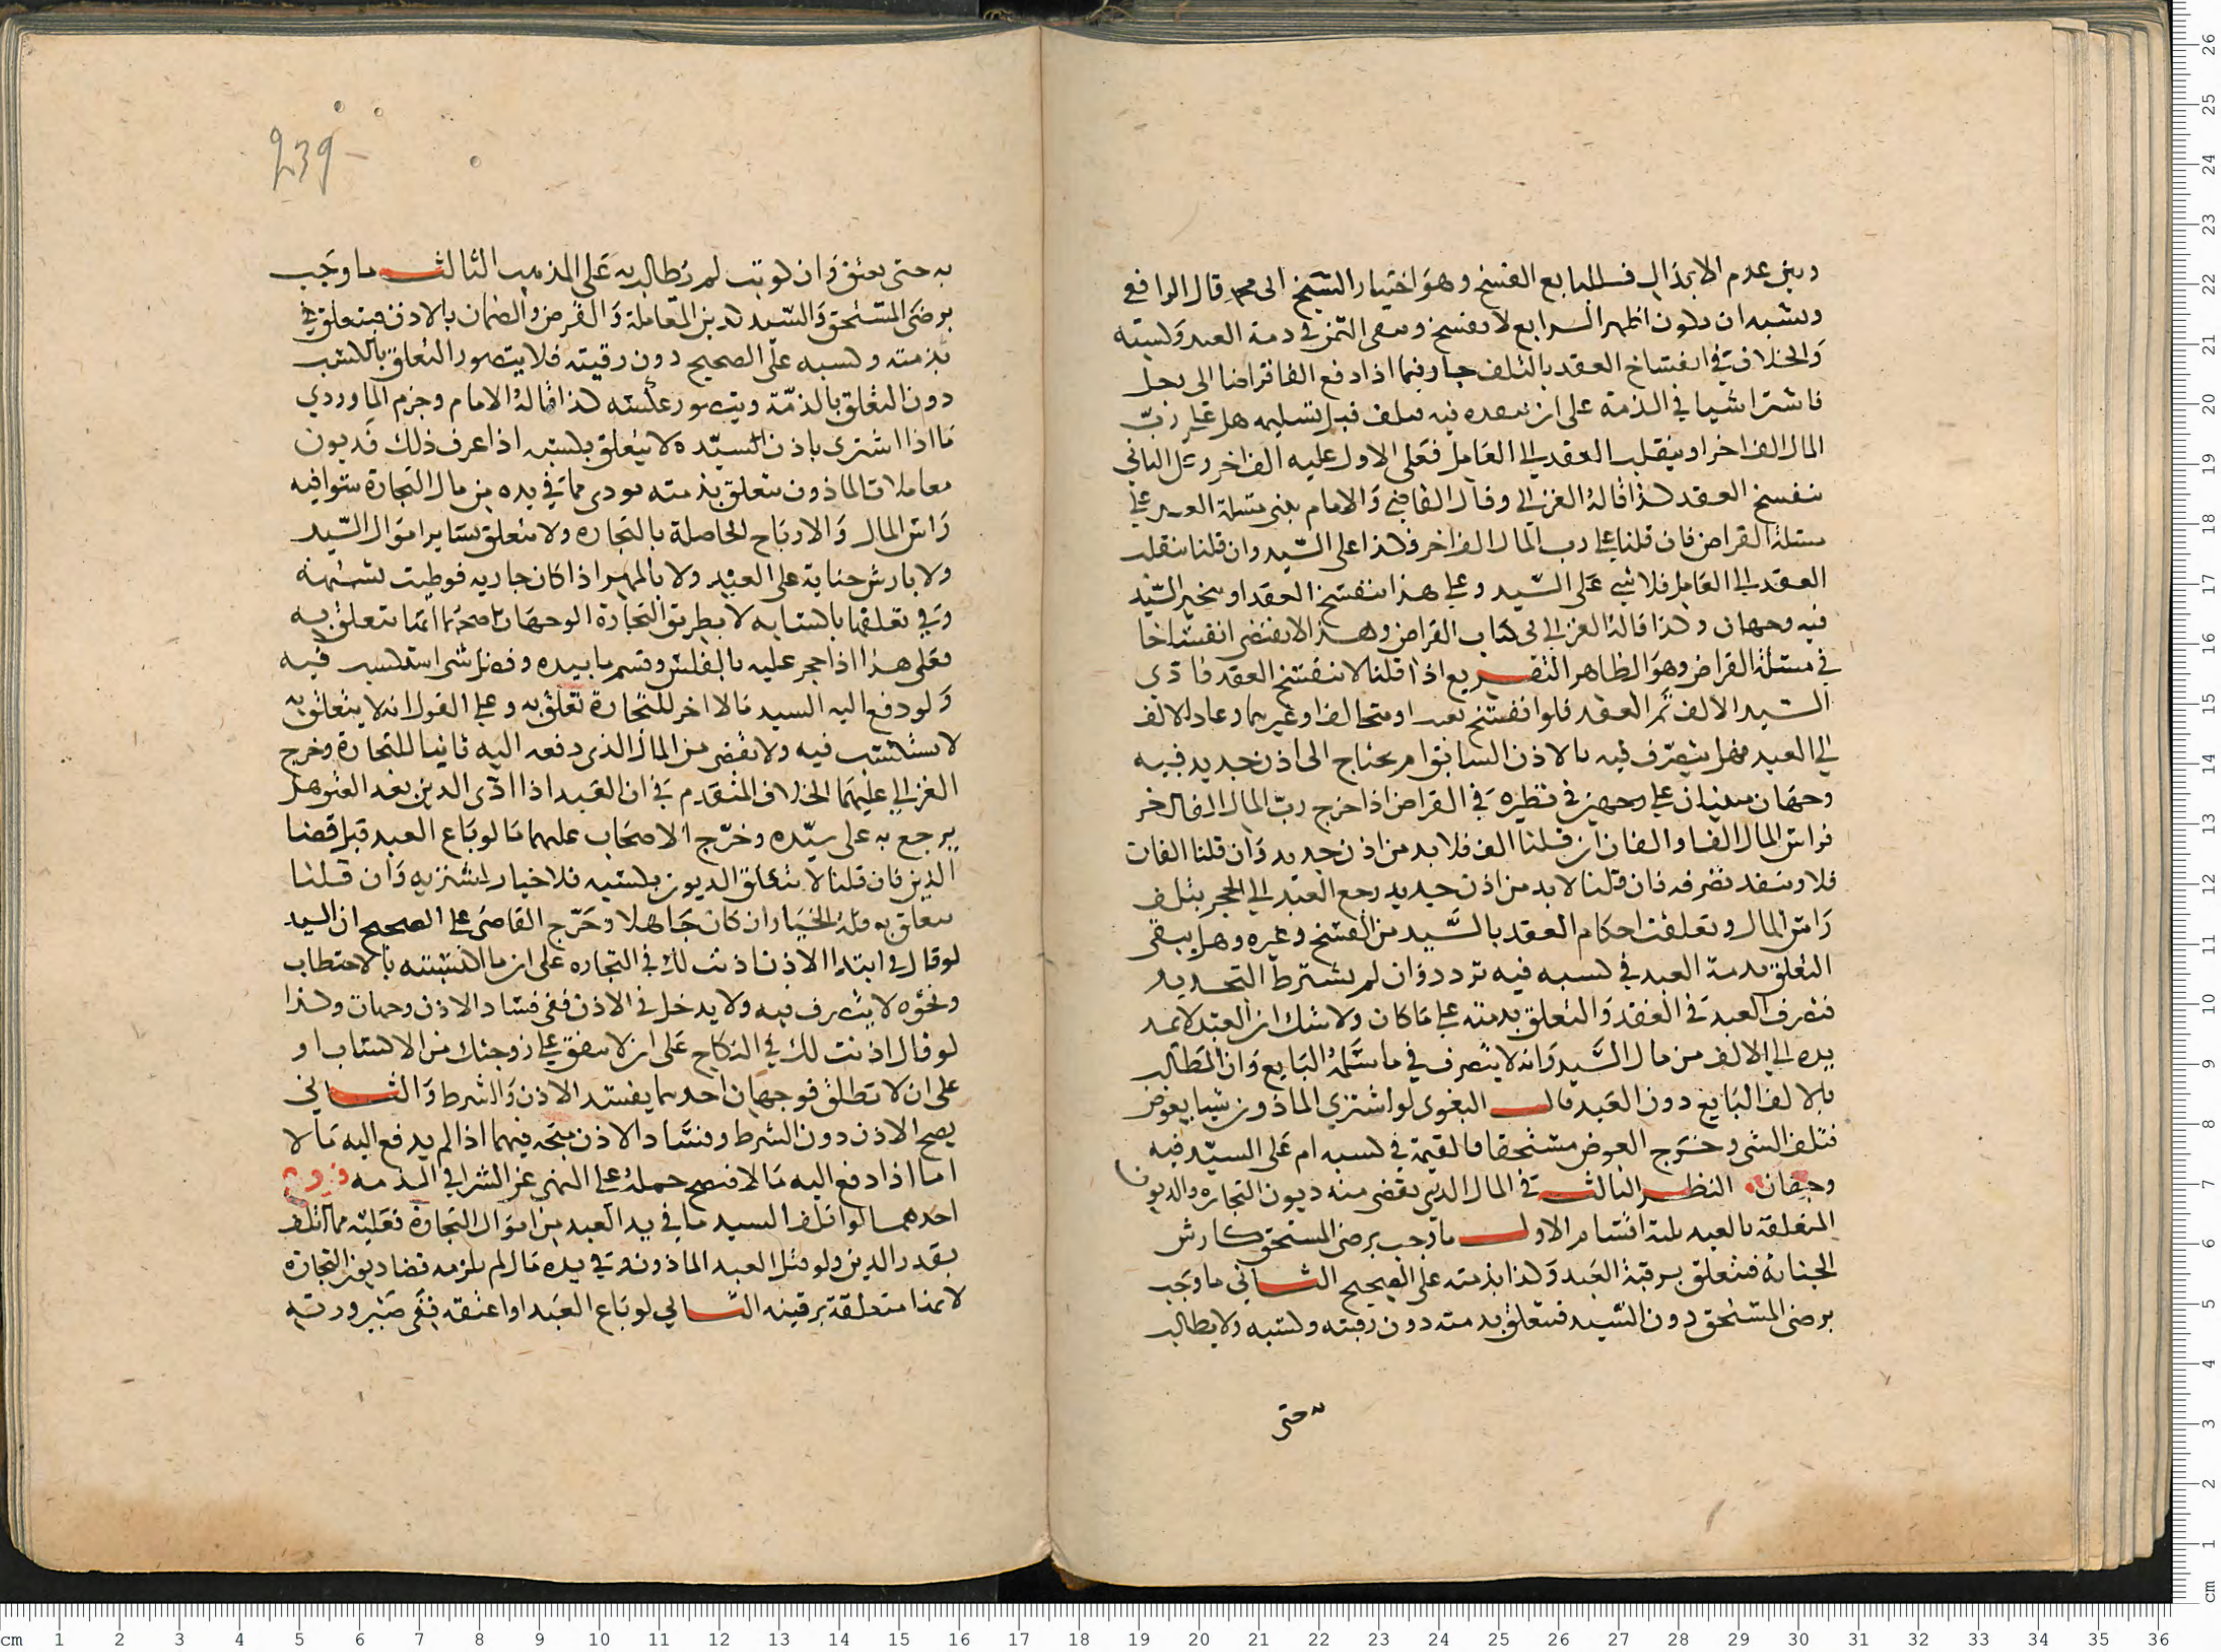 وبين عدم الابدال فللبايع الفسخ وهو اختيار الشيخ ابي محمد قال الرافعي
ويشبه ان يكون اظهر الرابع لا ينفسخ ويبقى الثمن في ذمة العبد وكسبه
والخلاف في انفساخ العقد بالتلف جار فيما اذا دفع الفا قراضا الى رجل
فاشترا شيا في الذمة على ان ينقده فيه فتلف قبل تسليمه هل على رب
المال الف اخر او ينقلب العقد الى العامل فعلى الاول عليه الف اخر وعلى الثاني
ينفسخ العقد كذا قاله الغزالي وقال القاضي والامام بنى مسلة العبد على
مسئلة القراض فان قلنا على رب المال الف اخر فكذا على السيد وان قلنا ينقلب
العقد الى العامل فلا شي على السيد وعلى هذا ينفسخ العقد او يتخير السيد
فيه وجهان وكذا قاله الغزالي في كتاب القراض وهذا لا يقتضي انفساخا
في مسئلة القراض وهو الظاهر التفريع اذا قلنا لا ينفسخ العقد فادى
السيد الالف ثم العقد فلو انفسخ بعد او تحالف او غيرهما وعاد الالف
الى العبد فهل يتصرف فيه بالاذن السابق ام يحتاج الى اذن جديد فيه
وجهان مبنيان على وجهين في نظيره في القراض اذا اخرج رب المال الفا اخر
فراس المال الف او الفان ان قلنا الف فلا بد من اذن جديد وان قلنا الفان
فلا وينفذ تصرفه فان قلنا لا بد من اذن جديد رجع العبد الى الحجر بتلف
راس المال وتعلقت احكام العقد بالسيد من الفسخ وغيره وهل يبقى
التعلق بذمة العبد في كسبه فيه تردد وان لم نشترط التجديد
فتصرف العبد في العقد والتعلق بذمته على ما كان ولا شك ان العبد لا يمد
يده الى الالف من مال السيد وانه لا يتصرف في ما سلمه البايع وان المطالب
بالالف البايع دون العبد قال البغوي لو اشترى الماذون شيا بعوض
فتلف الشي وخرج العوض مستحقا فالقيمة في كسبه ام على السيد فيه
وجهان النظر الثالث في المال الذي يقضى منه ديون التجارة والديون
المتعلقة بالعبد ثلثة اقسام الاول ما وجب برضى المستحق كارش
الجناية فتتعلق برقبة العبد وكذا بذمته على الصحيح الثاني ما وجب
برضى المستحق دون السيد فتتعلق بذمته دون رقبته وكسبه ولا يطالب
به حتى
239
به حتى يعتق وان كوتب لم يطالب به على المذهب الثالث ما وجب
برضى المستحق والسيد كدين المعاملة والقرض والضمان بالاذن فيتعلق
بذمته وكسبه على الصحيح دون رقبته فلا يتصور التعلق بالكسب
دون التعلق بالذمة ويتصور عكسه كذا قاله الامام وجزم الماوردي
ما اذا اشترى باذن السيد ولا يتعلق بكسبه اذا عرف ذلك فديون
معاملات الماذون تتعلق بذمته تودى مما في يده من مال التجارة سوا فيه
راس المال والارباح الحاصلة بالتجاره ولا تتعلق بساير اموال السيد
ولا بارش جناية على العبد ولا بالمهر اذا كان جاريه فوطيت بشبهة
وفي تعلقها باكتسابه لا بطريق التجارة الوجهان اصحهما انها تتعلق به
فعلى هذا اذا حجر عليه بالفلس وقسم ما بيده وفضل شي استكسب فيه
ولو دفع اليه السيد مالا اخر للتجارة تعلق به وعلى القول انه لا يتعلق به
لا يستكسب فيه ولا يقضى من المال الذي دفعه اليه ثانيا للتجارة وخرج
الغزالي عليهما الخلاف المتقدم في ان العبد اذا ادى الدين بعد العتق هل
يرجع به على سيده وخرج الاصحاب عليهما ما لو باع العبد قبل قضا
الدين فان قلنا لا تتعلق الديون بكسبه فلا خيار للمشتريه وان قلنا
تتعلق به فله الخيار ان كان جاهلا وخرج القاضي على الصحيح ان السيد
لو قال في ابتدا الاذن اذنت لك في التجاره على ان ما اكتسبته بالاحتطاب
ونحوه لا يتصرف فيه ولا يدخل في الاذن ففي فساد الاذن وجهان وكذا
لو قال اذنت لك في النكاح على ان لا تنفق على زوجتك من الاكتساب او
على ان لا تطلق فوجهان احدهما يفسد الاذن والشرط والثاني
يصح الاذن دون الشرط وفساد الاذن متجه فيهما اذا لم يدفع اليه مالا
اما اذا دفع اليه مالا فنصح حمله على النهي عن الشرا في الذمه فروع
احدهما لو اتلف السيد ما في يد العبد من اموال التجارة فعليه مما اتلف
بقدر الدين ولو قتل العبد الماذون وفي يده مال لم يلزمه قضا ديون التجارة
لانها متعلقة برقبته الثاني لو باع العبد او اعتقه ففي صيرورته